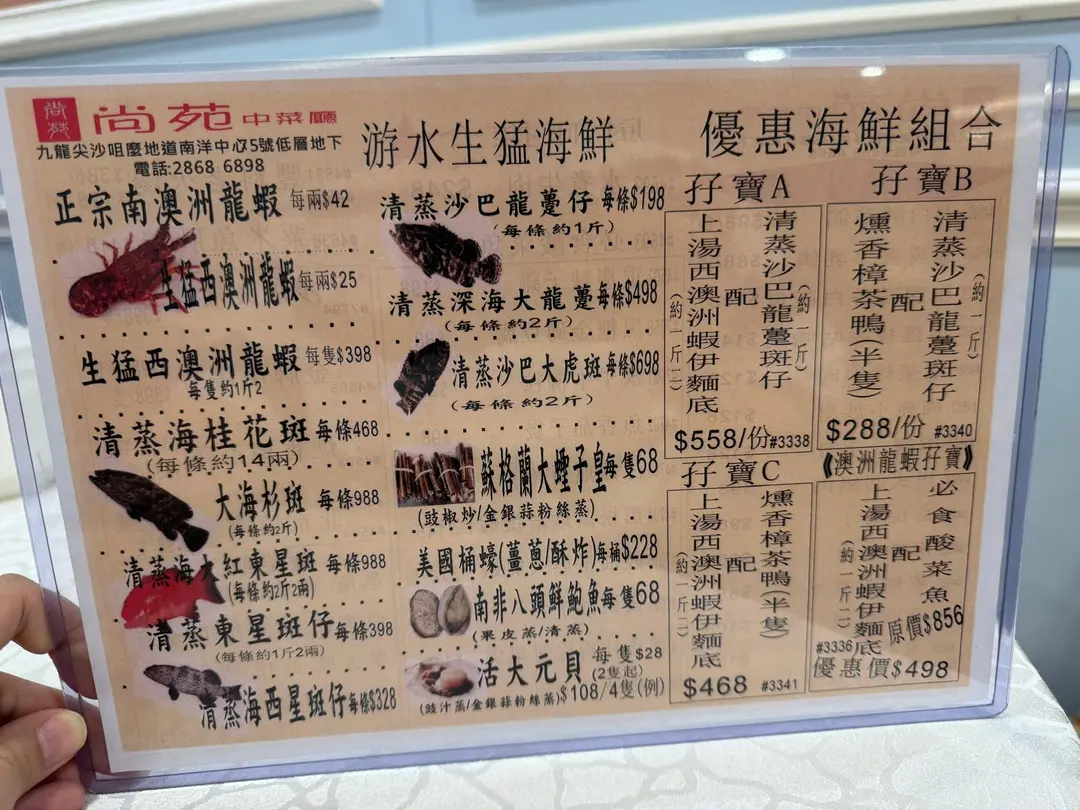 尚苑
尚苑中菜廳
九龍尖沙咀麼地道南洋中心75號低層地下
電話:2868 6898
游水生猛海鮮
優惠海鮮組合
正宗南澳洲龍蝦 每兩$42
生猛西澳洲龍蝦 每兩$25
生猛西澳洲龍蝦 每隻$398
每隻約1斤2
清蒸海桂花斑 每條468
(每條約14兩)
大海杉斑 每條988
(每條約2斤)
清蒸海大紅東星斑 每條988
(每條約2斤2兩)
清蒸東星斑仔 每條398
(每條約1斤2兩)
清蒸海西星斑仔 每條$328
清蒸沙巴龍躉仔 每條$198
(每條約1斤)
清蒸深海大龍躉 每條$498
(每條約2斤)
清蒸沙巴大虎斑 每條$698
(每條約2斤)
蘇格蘭大蟶子皇 每隻68
(豉椒炒/金銀蒜粉絲蒸)
美國桶蠔(薑蔥/酥炸) 每桶$228
南非八頭鮮鮑魚 每隻68
(果皮蒸/清蒸)
活大元貝 每隻$28
(2隻起)
(豉汁蒸/金銀蒜粉絲蒸) $108/4隻(例)
孖寶A
清蒸沙巴龍躉斑仔
(約一斤)
配
上湯西澳洲蝦伊麵底
(約一斤二)
$558/份 #3338
孖寶B
清蒸沙巴龍躉斑仔
(約一斤)
配
燻香樟茶鴨(半隻)
$288/份 #3340
孖寶C
燻香樟茶鴨(半隻)
配
上湯西澳洲蝦伊麵底
(約一斤二)
$468 #3341
《澳洲龍蝦孖寶》
必食酸菜魚
配
上湯西澳洲蝦伊麵底
(約一斤二)
原價$856
#3336
優惠價$498